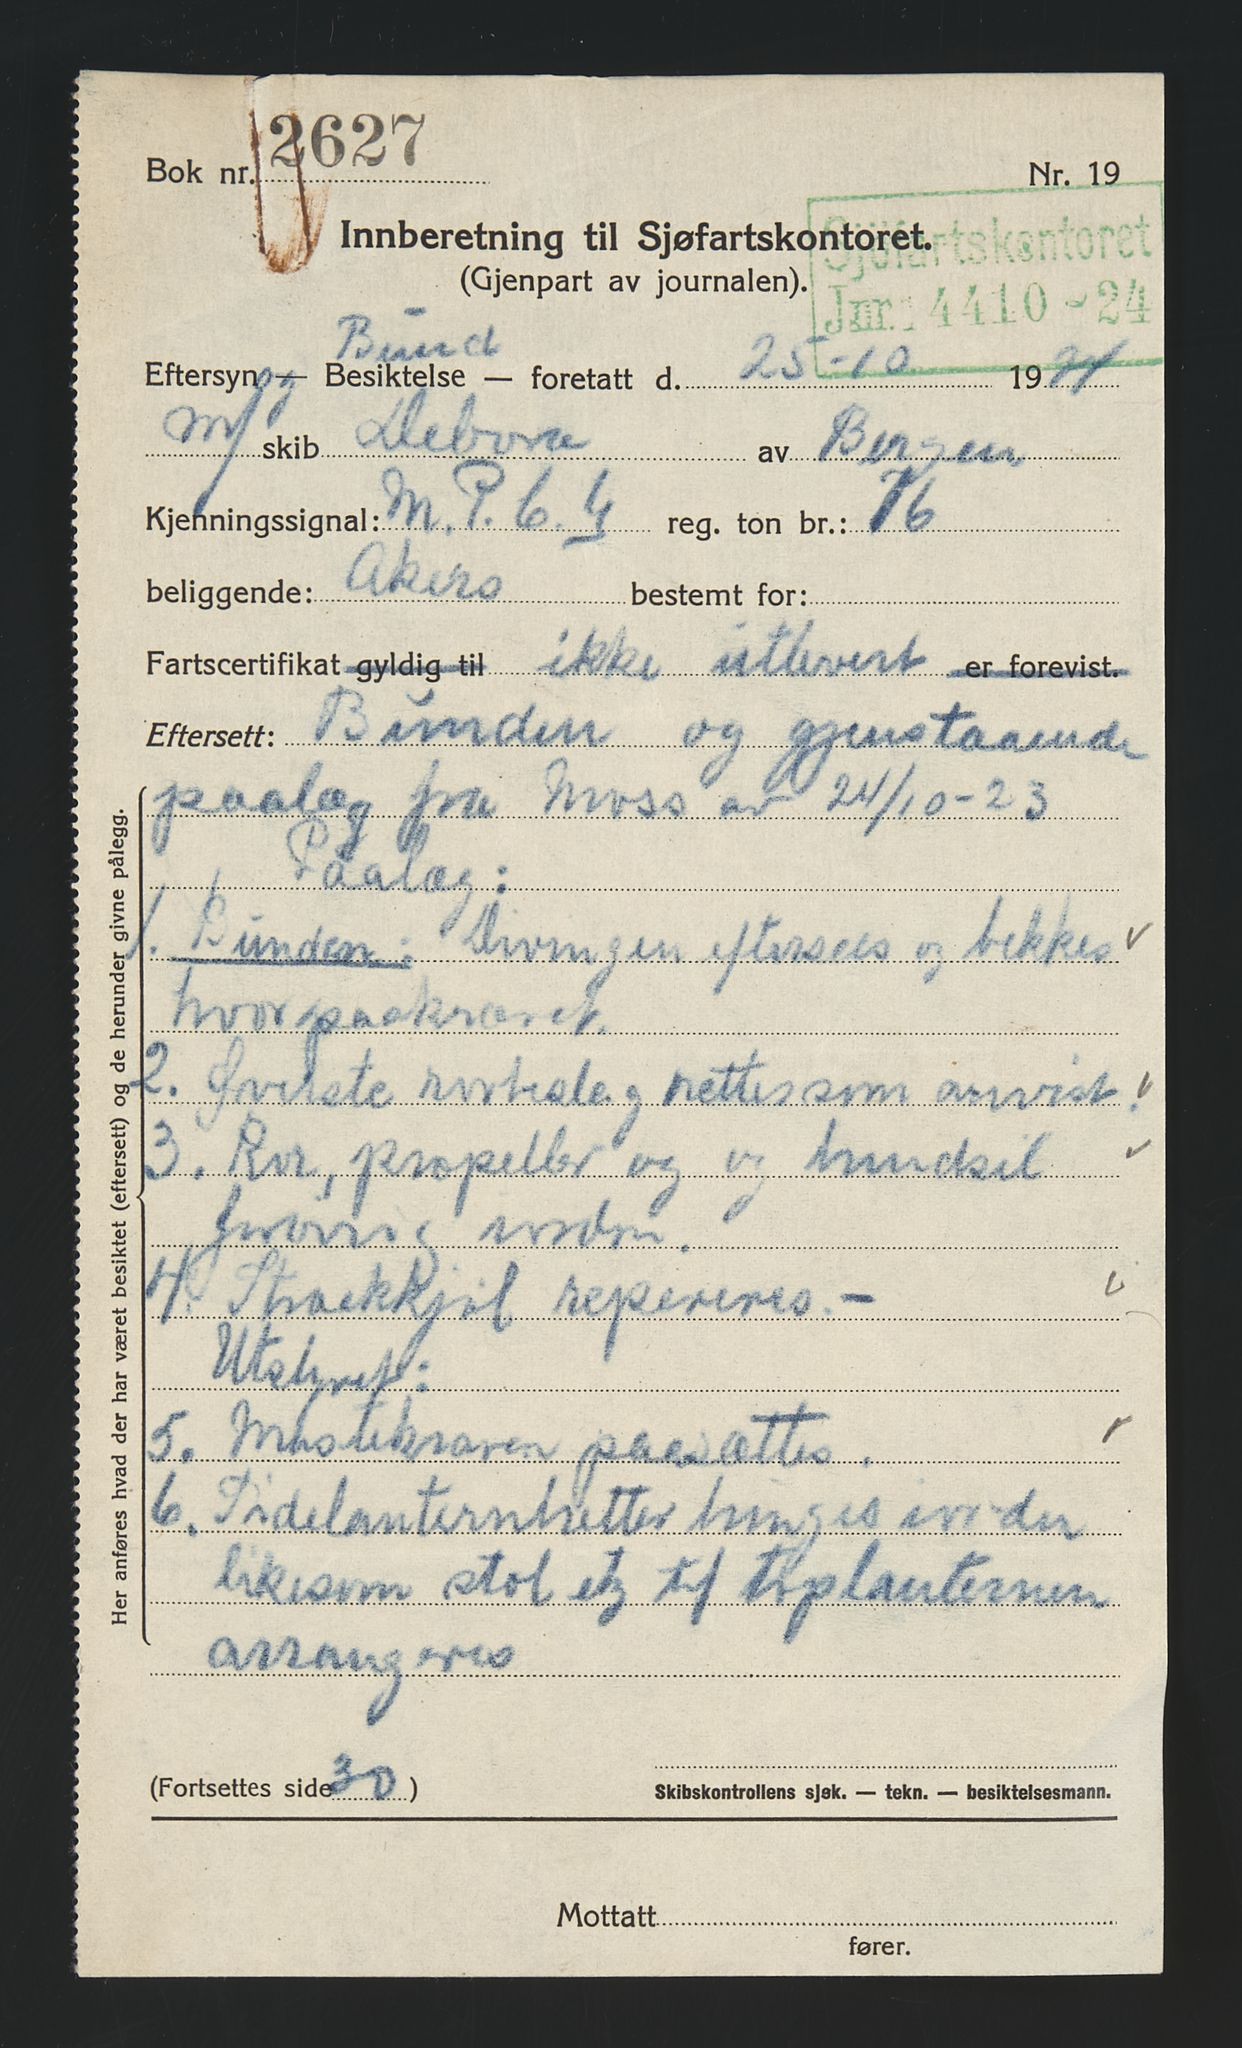 Bok nr. 2627
Nr. 19
Innberetning til Sjøfartskontoret.
(Gjenpart av journalen).
Sjöfartskontoret
Jnr.: 4410 - 24
Bund
Eftersyn og Besiktelse — foretatt d. 25-10 1924
m/ skib Debora av Bergen
Kjenningssignal: M. P. C. G reg. ton br.: 76
beliggende: Akers bestemt for:
Fartscertifikat gyldig til ikke utlevert er forevist.
Eftersett: Bunden og gjenstaaende
paalæg fra Moss av 24/10-23
Paalæg:
1. Bunden: Drivningen eftersees og bekkes
hvor paakrævet.
2. Øverste rorbeslag rettes som anvist.
3. Ror, propeller og
forøvrig iorden.
4. Strækkjøl repereres. —
Utstyret:
5. Mastekraven paasættes.
6. Sidelanternbretter bringes iorden
likesom stol etz til toplanternen
arrangeres
Her anføres hvad der har været besiktet (eftersett) og de herunder givne pålegg.
(Fortsettes side 30)
Skibskontrollens sjøk. — tekn. — besiktelsesmann.
Mottatt
fører.